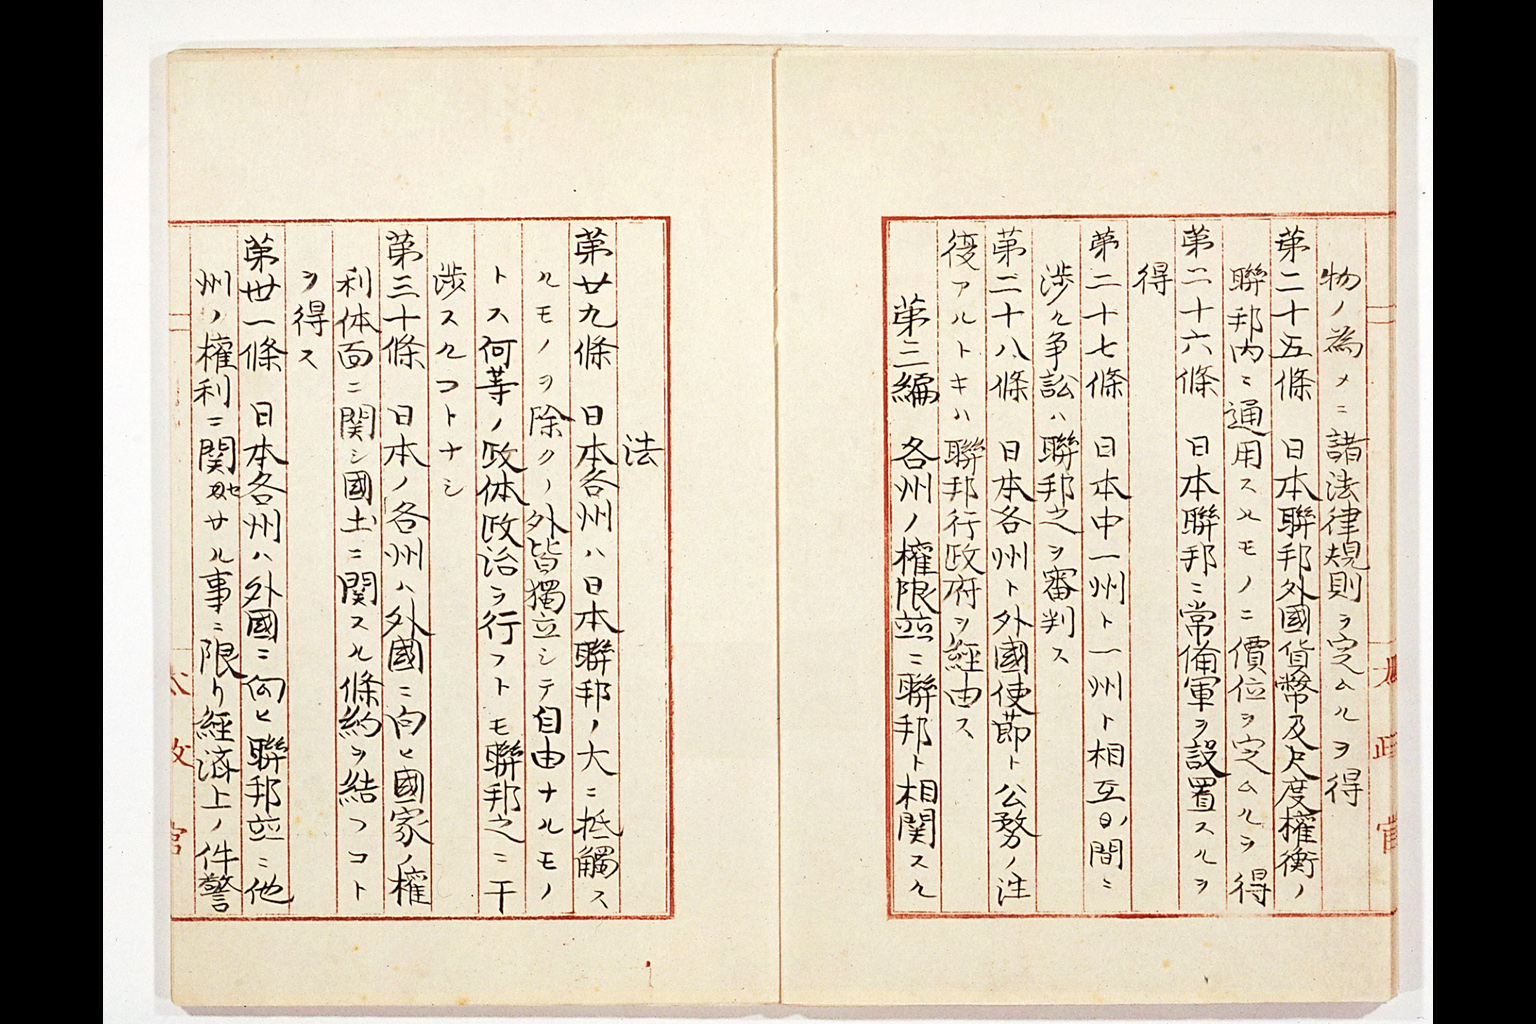 物ノ為メニ諸法律規則ヲ定ムルヲ得
第二十五條 日本聯邦外國貨幣及尺度權衡ノ
聯邦内ニ通用スルモノニ價位ヲ定ムルヲ得
第二十六條 日本聯邦ニ常備軍ヲ設置スルヲ
得
第二十七條 日本中一州ト一州ト相互ノ間ニ
渉ル争訟ハ聯邦之ヲ審判ス
第二十八條 日本各州ト外國使節ト公務ノ往
復アルトキハ聯邦行政府ヲ経由ス
第三編 各州ノ權限並ニ聯邦ト相関スル
法
第廿九條 日本各州ハ日本聯邦ノ大ニ抵觸ス
ルモノヲ除クノ外皆獨立シテ自由ナルモノ
トス何等ノ政体政治ヲ行フトモ聯邦之ニ干
渉スルコトナシ
第三十條 日本ノ各州ハ外國ニ向ヒ國家ノ權
利体面ニ関シ國土ニ関スル條約ヲ結フコト
ヲ得ス
第丗一條 日本各州ハ外國ニ向ヒ聯邦並ニ他
州ノ權利ニ関セサル事ニ限リ経済上ノ件警
太政官